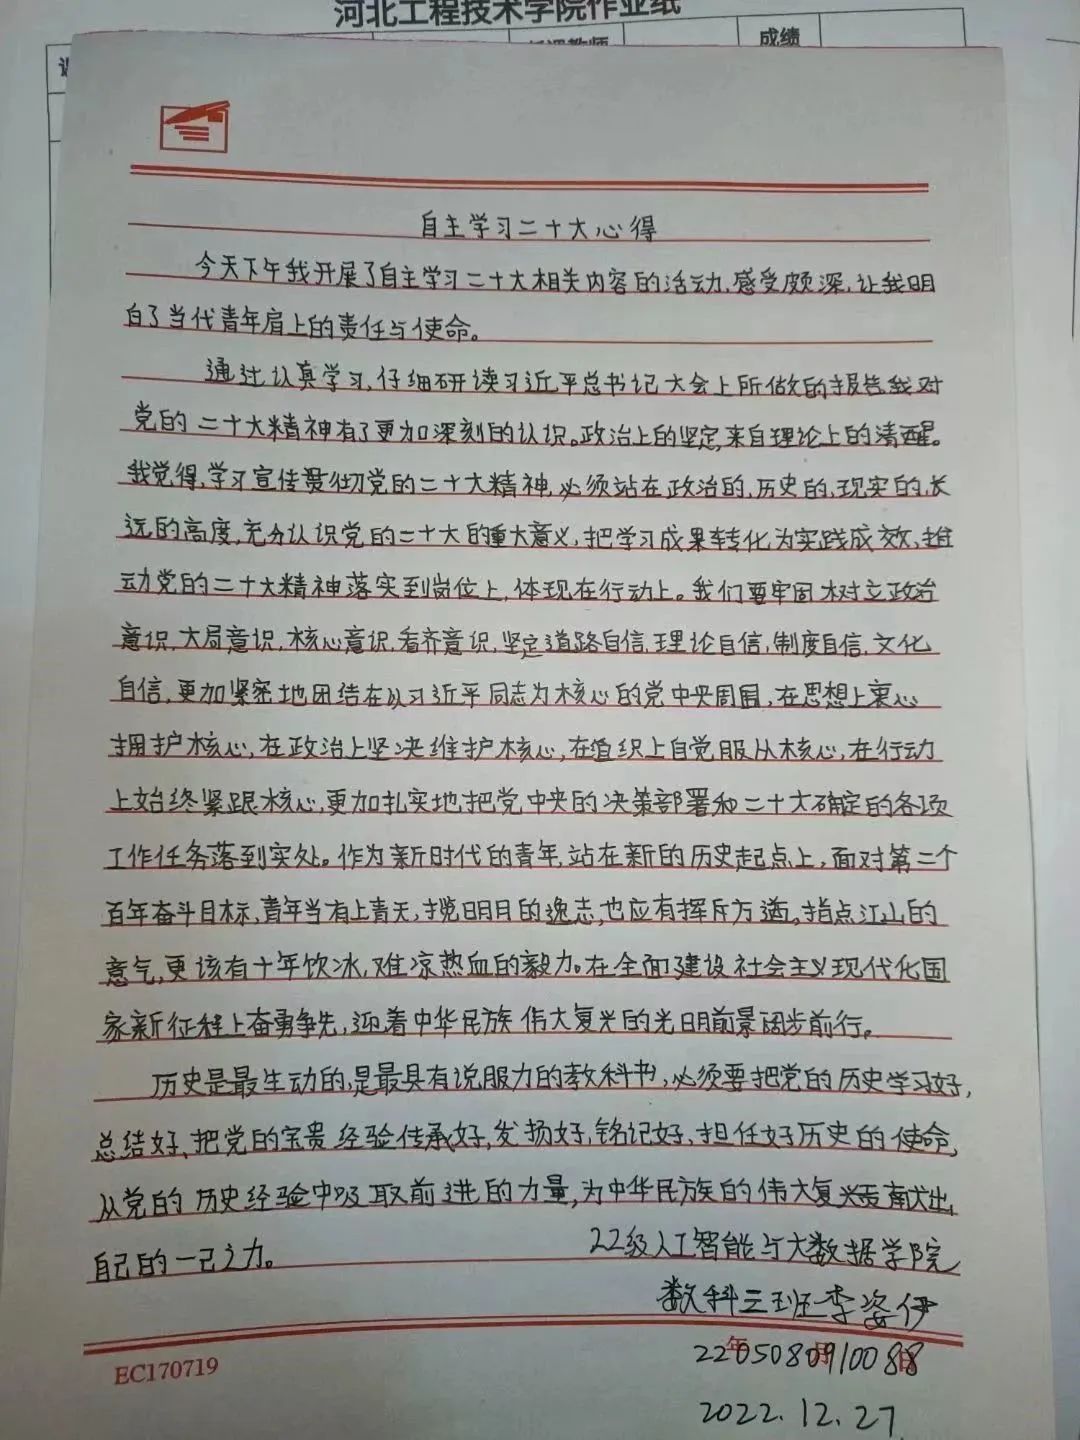 河北工程技术学院作业纸
成绩
自主学习二十大心得
今天下午我开展了自主学习二十大相关内容的活动,感受颇深,让我明
白了当代青年肩上的责任与使命。
通过认真学习,仔细研读习近平总书记大会上所做的报告我对
党的二十大精神有了更加深刻的认识。政治上的坚定,来自理论上的清醒。
我觉得,学习宣传贯彻党的二十大精神,必须站在政治的,历史的,现实的,长
远的高度,充分认识党的二十大的重大意义,把学习成果转化为实践成效,推
动党的二十大精神落实到岗位上,体现在行动上。我们要牢固树立政治
意识,大局意识,核心意识,看齐意识,坚定道路自信,理论自信,制度自信,文化
自信,更加紧密地团结在以习近平同志为核心的党中央周围,在思想上衷心
拥护核心,在政治上坚决维护核心,在组织上自觉服从核心,在行动
上始终紧跟核心,更加扎实地把党中央的决策部署和二十大确定的各项
工作任务落到实处。作为新时代的青年,站在新的历史起点上,面对第二个
百年奋斗目标,青年当有上青天,揽明月的逸志,也应有挥斥方遒。指点江山的
意气,更该有十年饮冰,难凉热血的毅力。在全面建设社会主义现代化国
家新征程上奋勇争先,迎着中华民族伟大复兴的光明前景阔步前行。
历史是最生动的,是最具有说服力的教科书,必须要把党的历史学习好,
总结好、把党的宝贵经验传承好,发扬好,铭记好,担任好历史的使命,
从党的历史经验中吸取前进的力量,为中华民族的伟大复兴贡献出
自己的一己之力。
22级人工智能与大数据学院
数科三班李姿伊
年 月 日
2205080910088
EC170719
2022.12.27